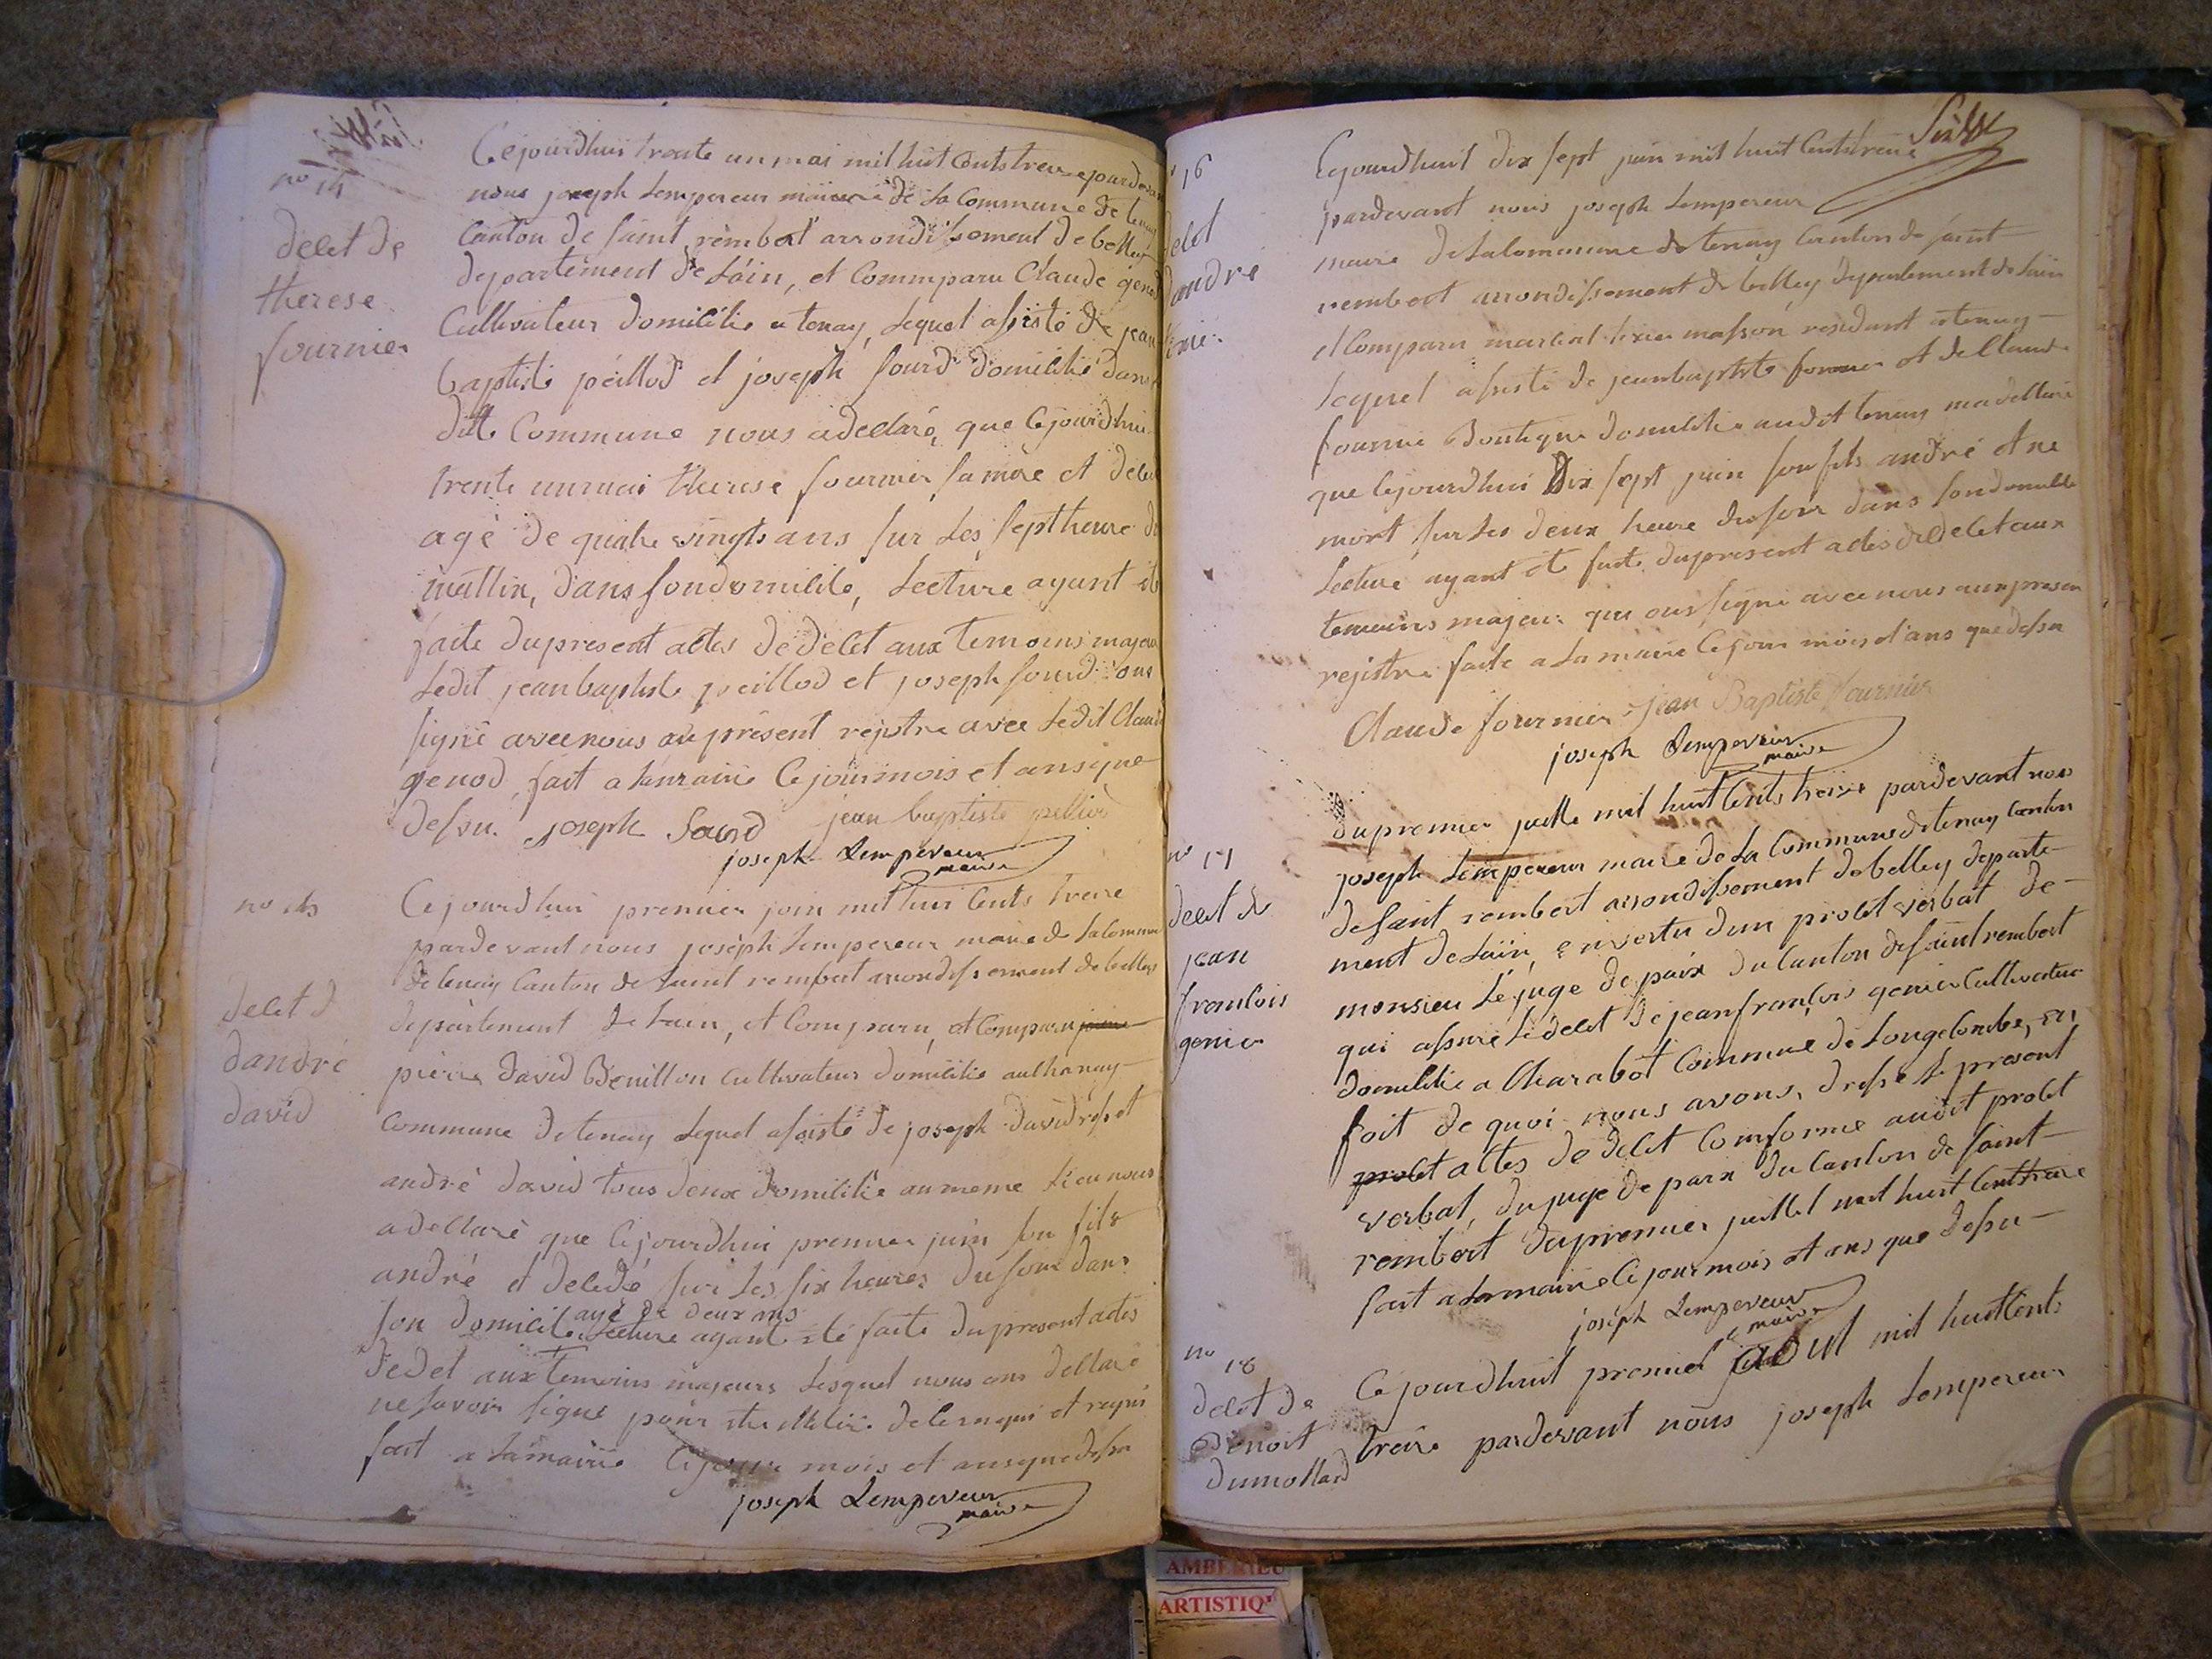 no 14
delet de
therese
fournier
Cejourdhui trente un mai mil huit Cents treize pardevant
nous joseph Lempereur maire de La Commune de tenay
Canton de saint rembert arrondissement de belley
departement de Lain, et Commparu Claude genod
Cultivateur domicilie a tenay, Lequel assisté de jean
baptiste peillod et joseph sourd domicilié dans
ditte Commune nous adeclaré, que Cejourdhui
trente unmai therese fournier sa mere et deled
agé de quatre vingts ans sur Les sept heure du
mattin, dans sondomicile, Lecture ayant été
faite dupresent actes dedelet aux temoins majeur
Ledit jeanbaptiste peillod et joseph sourd ons
signé avecnous au présent rejstre avec Ledit Claude
genod, fait a Lamairie Cejourmois et ansque
dessu. joseph Sourd jean baptiste pelliod
joseph Lempereur
maire
no 15
delet d
dandré
david
Cejourdhui premier juin mil huis Cents treize
pardevant nous joseph Lempereur maire de La Commune
de tenay Canton de saint rembert arrondissement de belley
département de Lain, et Comparu, et Comparu
pierre david Benillon Cultivateur domicilie
Commune de tenay Lequel assisté de joseph david et
andré david tous deux domicilié aumeme Lieu nous
adeclaré que Cejourdhui premier juin son fils
andré et deledé sur Les six heures dusoir dans
son domicile agé de deux ans Lecture ayant été faite dupresent actes
dedet aux temoins majeurs Lesquel nous ons déclaré
nesavoir signe pour de Cernequi et requi
fait a Lamairie Cejour mois et ansquedessu
joseph Lempereur
maire
16
delet
dandré
Cejourdhuit dix sept juin mil huit Cents treize
pardevant nous joseph Lempereur
maire de Lacommune de tenay Canton de saint
rembert arrondissement de belley departement de Lain
et Comparu marcial masson residant a tenay
Lequel assisté de jeanbaptiste fournier et de Claude
fournié Boutique domicilie audit tenay madeclaré
que Cejourdhui Dix sept juin son fils andré et ne
mort sur Les deux heure dusoir dans sondomicile
Lecture ayant été faite dupresent actes de delet aux
temoins majeur qui ons signé avec nous au present
rejistre faite a La mairie Cejour mois et ans que dessu
Claude fournier jean Baptiste fournier
joseph Lempereur
maire
no 17
delet de
jean
franlois
genier
Dupremier juille mil huit Cents treize pardevant nous
joseph Lempereur maire de La Commune de tenay Canton
desaint rembert arrondissement de belley departe-
ment deLain, envertu dun prolet verbat de
monsieu Le juge de paix du Canton de saint rembert
qui assure Ledelet de jeanfranlois genier Cultivateur
domicilie a Charabot Commune de Longelombe, en
foit de quoi nous avons, dressé le present
prolet actes de delet Comforme audit prolet
verbat, du juge de paix du Canton de saint
rembert dupremier juillet mil huit Cent treize
fait a Lamairie Cejour mois et ans que dessu
joseph Lempereur
maire
no 18
delet de
Benoit
dumollard
Cejourdhuit premier aout mil huit Cents
treize pardevant nous joseph Lempereur
AMBERIEU
ARTISTIQ